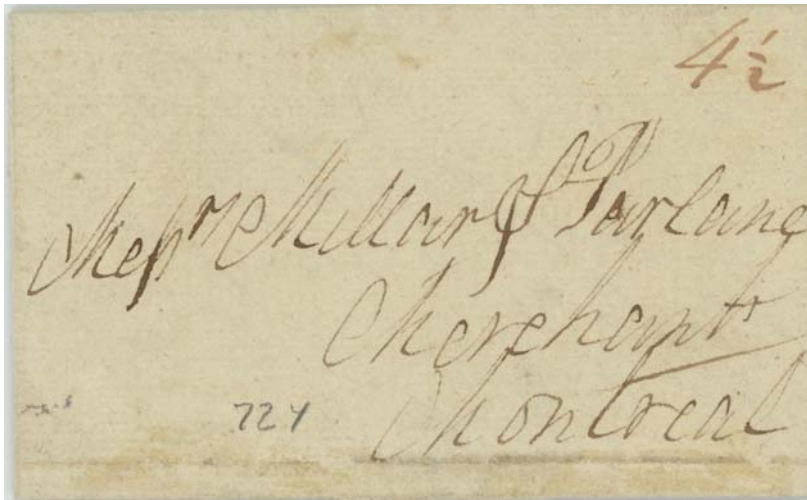 4½
Messrs Millar & Parlane
Merchants
Montreal
724